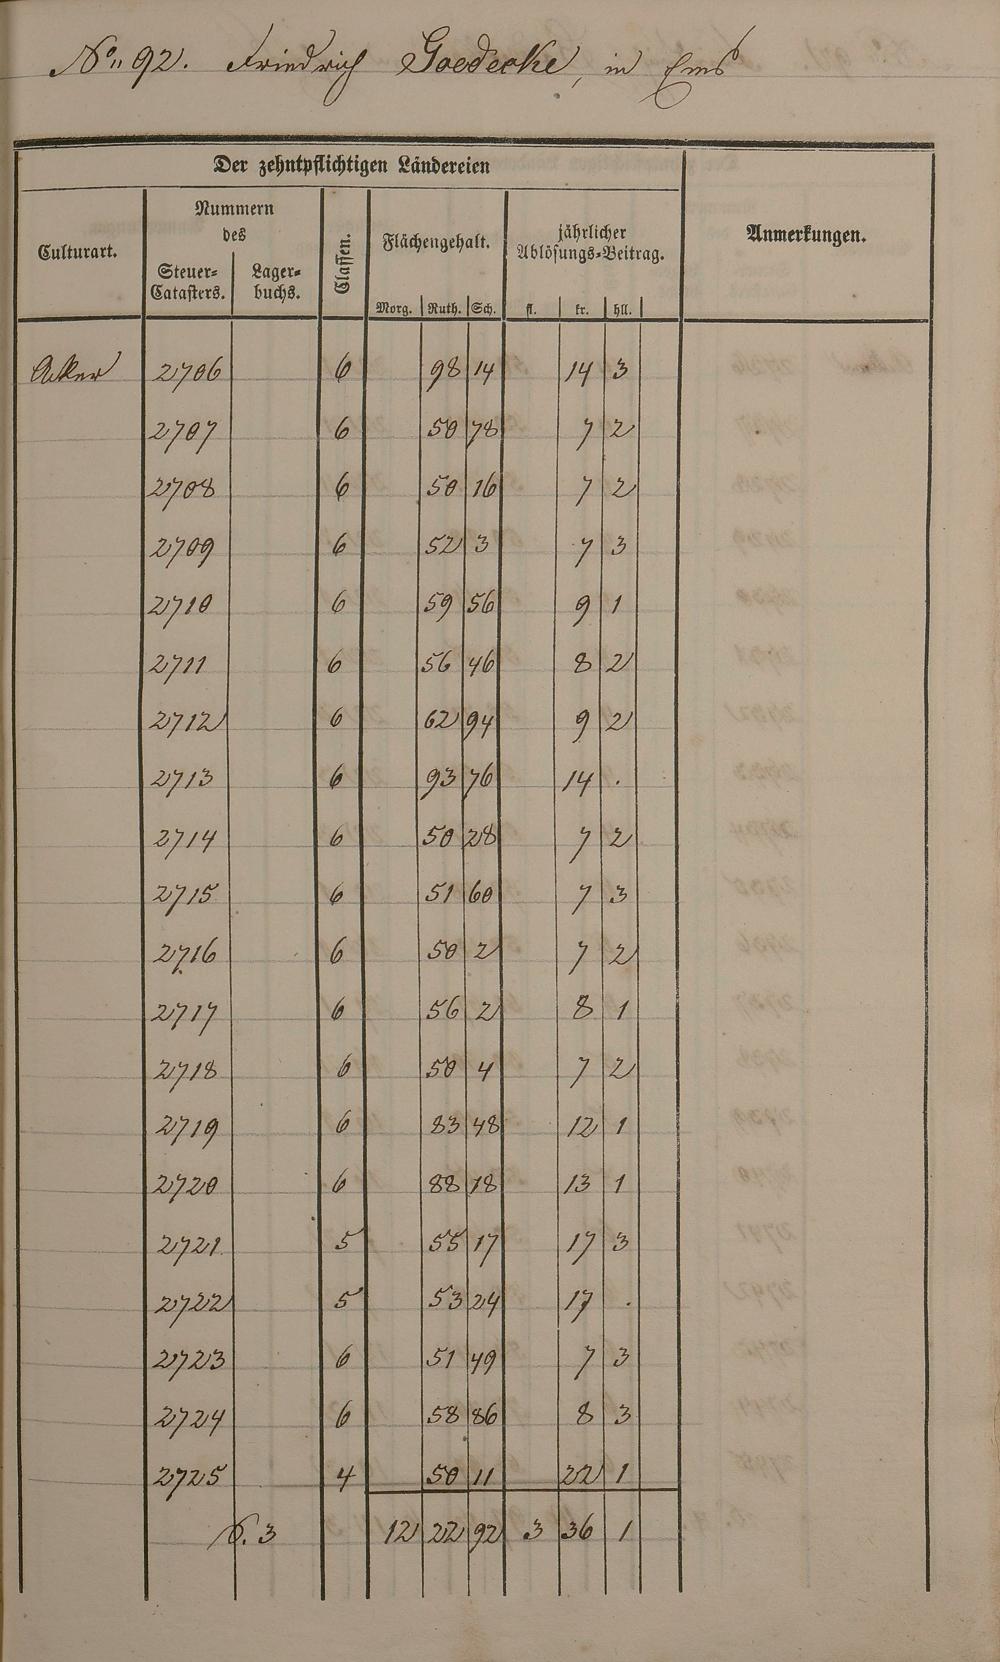 No. 92. Friedrich Goedecke, in Ems
Der zehntpflichtigen Ländereien
Culturart.
Nummern
des
Steuer-
Catasters.
Lager-
buchs.
Classen.
Flächengehalt.
Morg. Ruth. Sch.
jährlicher
Ablösungs-Beitrag.
fl. kr. hll.
Anmerkungen.
Acker 2706 6 98 14 14 3
2707 6 50 78 7 2
2708 6 50 16 7 2
2709 6 52 3 7 3
2710 6 59 56 9 1
2711 6 56 46 8 2
2712 6 62 94 9 2
2713 6 93 76 14 .
2714 6 50 28 7 2
2715 6 51 60 7 3
2716 6 50 2 7 2
2717 6 56 2 8 1
2718 6 50 4 7 2
2719 6 83 48 12 1
2720 6 88 18 13 1
2721 5 55 17 17 3
2722 5 53 24 17 .
2723 6 51 49 7 3
2724 6 58 86 8 3
2725 4 50 11 22 1
S. 3 12 22 92 3 36 1